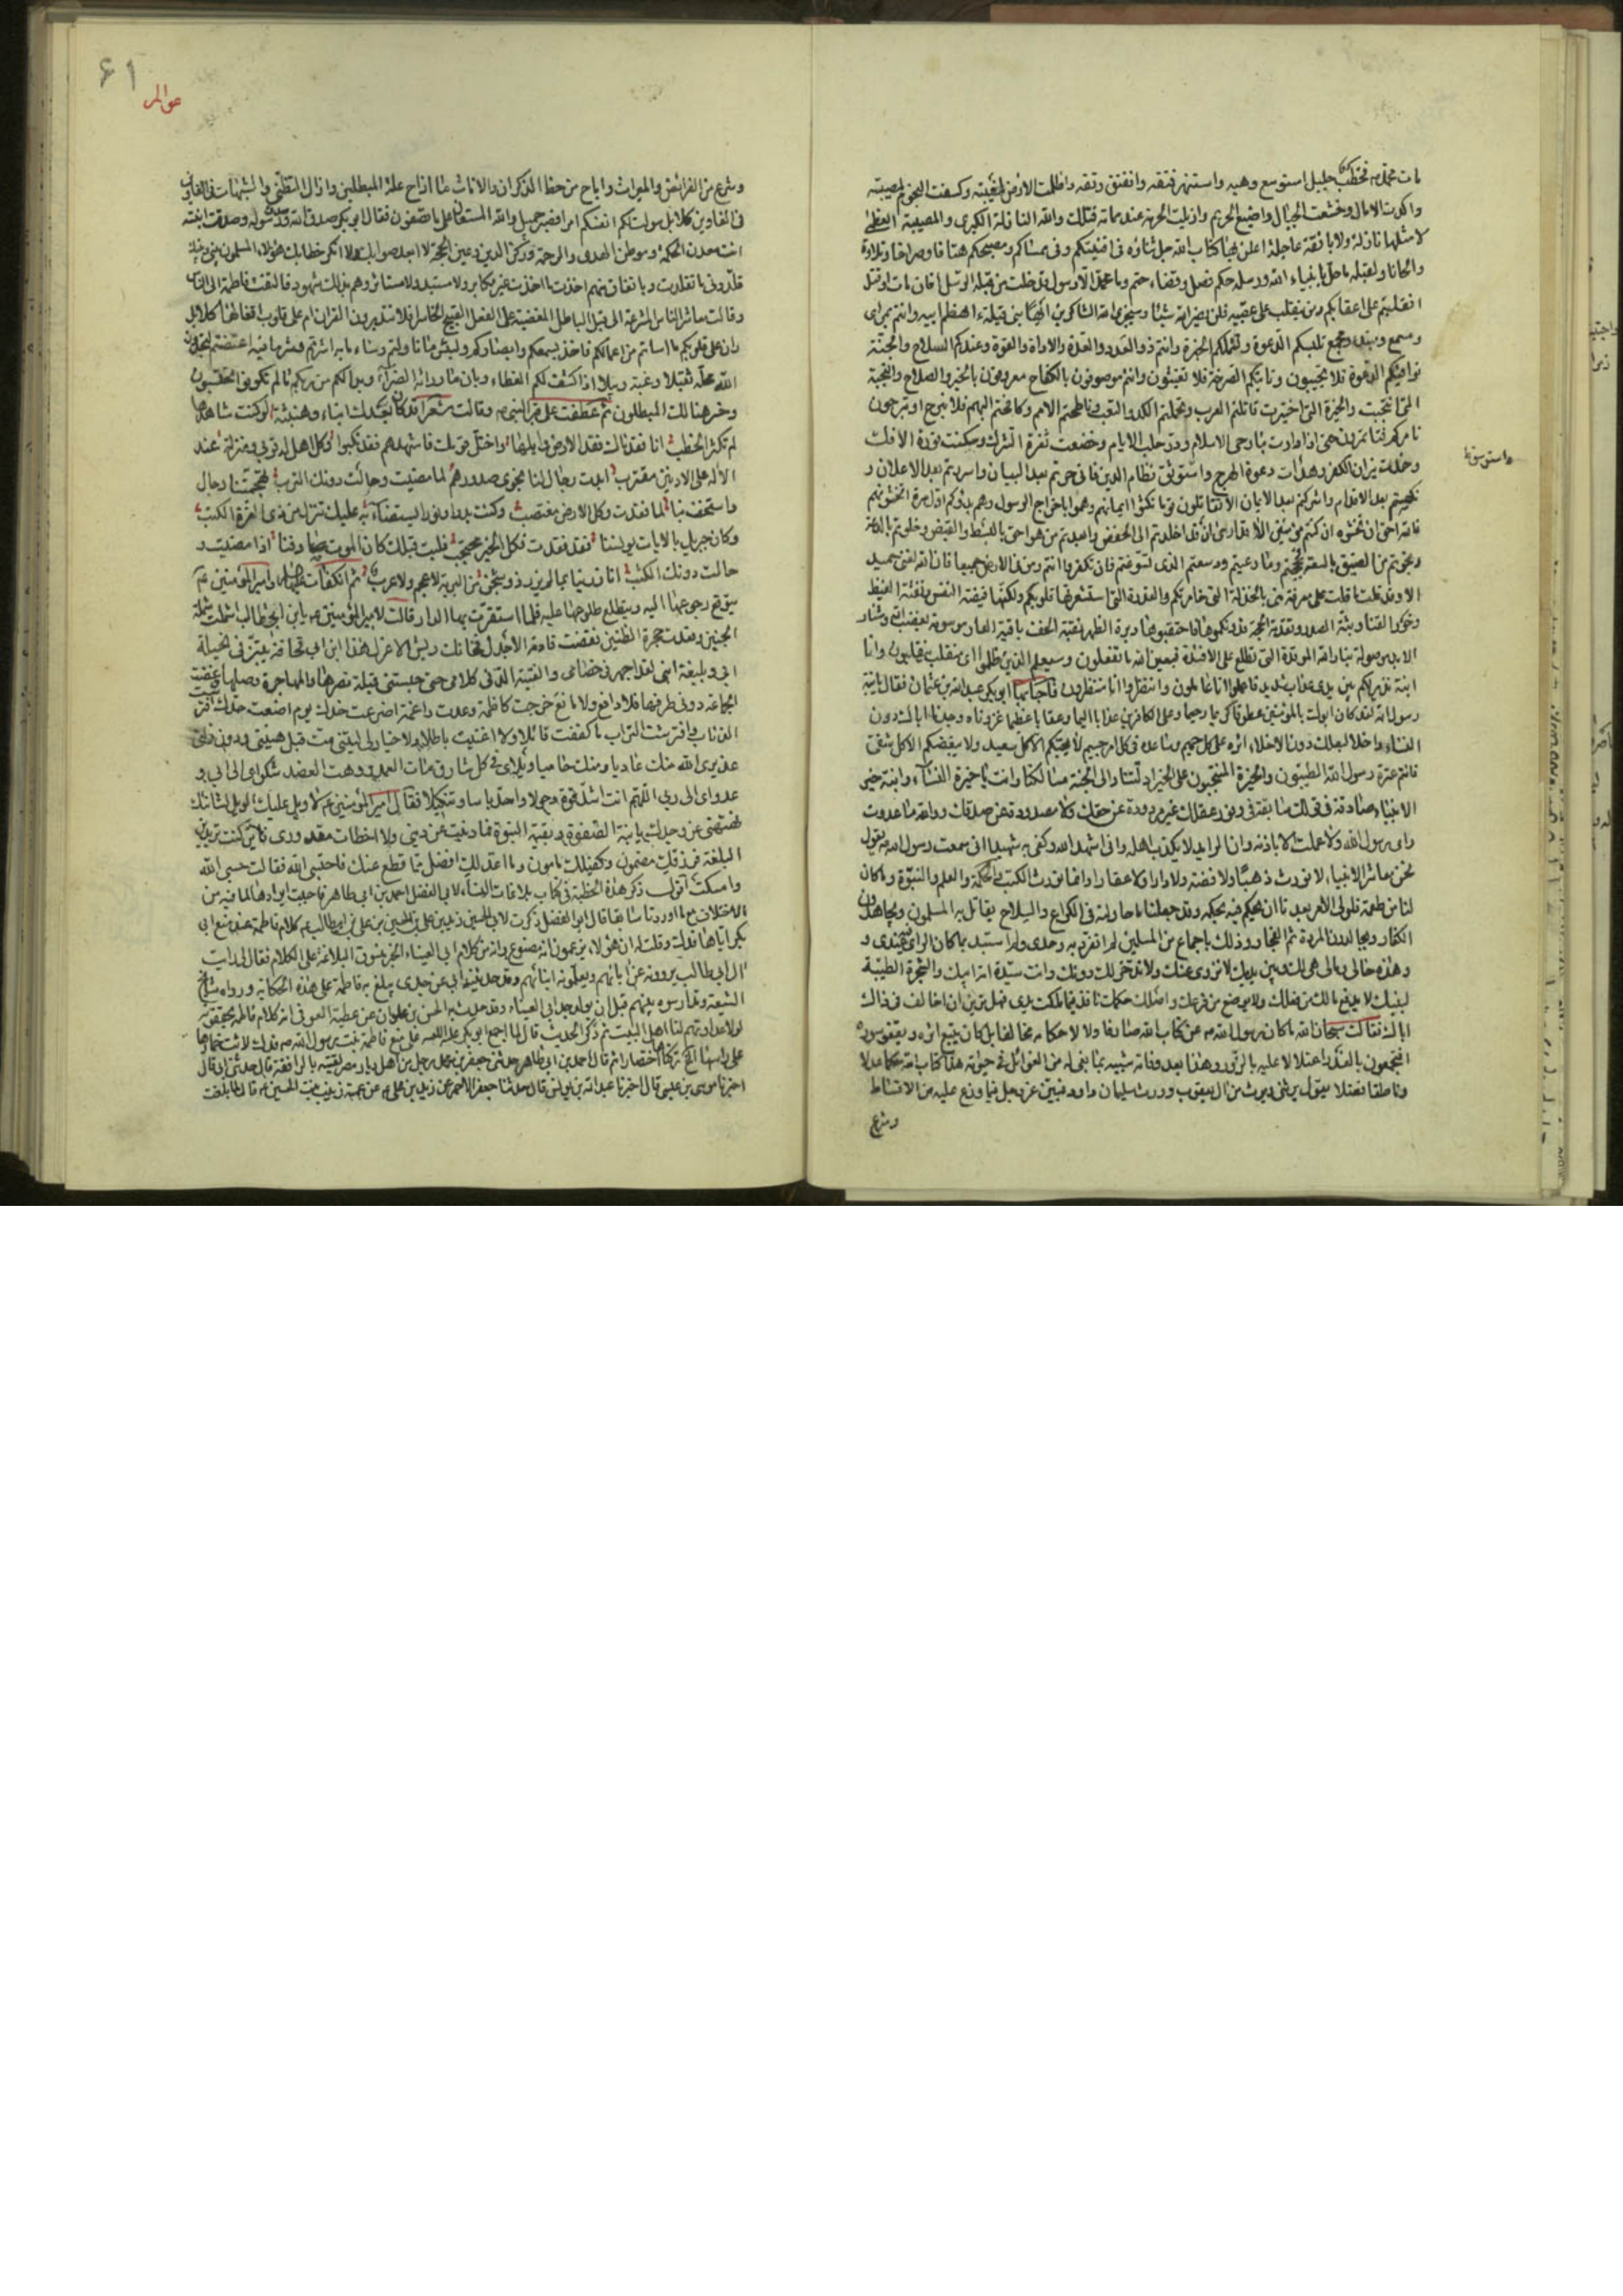 مات محمد ص فخطب جليل استوسع وهيه واستنهر فتقه وانفتق رتقه واظلمت الارض لغيبته وكسفت النجوم لمصيبته
واكدت الامال وخشعت الجبال واضيع الحريم وازيلت الحرمة عند مماته فتلك والله النازلة الكبرى والمصيبة العظمى
لا مثلها نازلة ولا بائقة عاجلة اعلن بها كتاب الله جل ثناؤه فى افنيتكم وفى ممساكم ومصبحكم هتافا وصراخا وتلاوة
والحانا ولقبله ما حل بانبياء الله ورسله حكم فصل وقضاء حتم وما محمد الا رسول قد خلت من قبله الرسل افان مات او قتل
انقلبتم على اعقابكم ومن ينقلب على عقبيه فلن يضر الله شيئا وسيجزى الله الشاكرين ايها بنى قيلة ءاهضم ابيه وانتم بمراى
ومسمع ومبتد ومجمع تلبسكم الدعوة وتشملكم الخبرة وانتم ذوو العدد والعدة والاداة والقوة وعندكم السلاح والجنة
توافيكم الدعوة فلا تجيبون وتاتيكم الصرخة فلا تغيثون وانتم موصوفون بالكفاح معروفون بالخير والصلاح والنجبة
التى انتجبت والخيرة التى اختيرت قاتلتم العرب وتحملتم الكد والتعب وناطحتم الامم وكافحتم البهم فلا نبرح او تبرحون
نامركم فتاتمرون حتى اذا دارت بنا رحى الاسلام ودر حلب الايام وخضعت نعرة الشرك وسكنت فورة الافك
وخمدت نيران الكفر وهدات دعوة الهرج واستوثق نظام الدين فانى حرتم بعد البيان واسررتم بعد الاعلان و
واستوسق
نكصتم بعد الاقدام واشركتم بعد الايمان الا تقاتلون قوما نكثوا ايمانهم وهموا باخراج الرسول وهم بدؤكم اول مرة اتخشونهم
فالله احق ان تخشوه ان كنتم مؤمنين الا قد ارى ان قد اخلدتم الى الخفض وابعدتم من هو احق بالبسط والقبض وخلوتم بالدعة
ونجوتم من الضيق بالسعة فمججتم وما وعيتم ودسعتم الذى تسوغتم فان تكفروا انتم ومن فى الارض جميعا فان الله لغنى حميد
الا وقد قلت ما قلت على معرفة منى بالخذلة التى خامرتكم والغدرة التى استشعرتها قلوبكم ولكنها فيضة النفس ونفثة الغيظ
وخور القنا وبثة الصدر وتقدمة الحجة فدونكموها فاحتقبوها دبرة الظهر نقبة الخف باقية العار موسومة بغضب الله وشنار
الابد موصولة بنار الله الموقدة التى تطلع على الافئدة فبعين الله ما تفعلون وسيعلم الذين ظلموا اى منقلب ينقلبون وانا
ابنة نذير لكم بين يدى عذاب شديد فاعملوا انا عاملون وانتظروا انا منتظرون فاجابها ابو بكر عبد الله بن عثمان فقال يا ابنة
رسول الله لقد كان ابوك بالمؤمنين عطوفا كريما رحيما وعلى الكافرين عذابا اليما وعقابا عظيما فان عزوناه وجدناه اباك دون
النساء واخا لبعلك دون الاخلاء اثره على كل حميم وساعده فى كل امر جسيم لا يحبكم الا كل سعيد ولا يبغضكم الا كل شقى
فانتم عترة رسول الله الطيبون والخيرة المنتجبون على الخير ادلتنا والى الجنة مسالكنا وانت يا خيرة النساء وابنة خير
الانبياء صادقة فى قولك سابقة فى وفور عقلك غير مردودة عن حقك ولا مصدودة عن صدقك ووالله ما عدوت
راى رسول الله ولا عملت الا باذنه وان الرائد لا يكذب اهله وانى اشهد الله وكفى به شهيدا انى سمعت رسول الله ص يقول
نحن معاشر الانبياء لا نورث ذهبا ولا فضة ولا دارا ولا عقارا وانما نورث الكتب والحكمة والعلم والنبوة وما كان
لنا من طعمة فلولى الامر بعدنا ان يحكم فيه بحكمه وقد جعلنا ما حاولته فى الكراع والسلاح يقاتل به المسلمون ويجاهدون
الكفار ويجالدون المردة ثم الفجار وذلك باجماع من المسلمين لم اتفرد به وحدى ولم استبد بما كان الراى فيه عندى و
وهذه حالى ومالى هى لك وبين يديك لا نزوى عنك ولا ندخر دونك وانت سيدة امة ابيك والشجرة الطيبة
لبنيك لا يدفع مالك من فضلك ولا يوضع من فرعك واصلك حكمك نافذ فيما ملكت يداى فهل ترين ان اخالف فى ذاك
اباك فقالت سبحان الله ما كان رسول الله ص عن كتاب الله صادفا ولا لاحكامه مخالفا بل كان يتبع اثره ويقفو سوره
افتجمعون بالغدر اعتلالا عليه بالزور وهذا بعد وفاته شبيه بما بغى له من الغوائل فى حيوته هذا كتاب الله حكما عدلا
وناطقا فصلا يقول يرثنى ويرث من ال يعقوب وورث سليمان داود فبين عز وجل فيما وزع عليه من الاقساط
وشرع
۶۱
عوالم
وشرع من الفرائض والميراث واباح من حظ الذكران والاناث ما ازاح علة المبطلين وازال التظنى والشبهات فى الغابرين
كلا بل سولت لكم انفسكم امرا فصبر جميل والله المستعان على ما تصفون فقال ابو بكر صدق الله ورسوله وصدقت ابنته
انت معدن الحكمة وموطن الهدى والرحمة وركن الدين وعين الحجة لا ابعد صوابك ولا انكر خطابك هؤلاء المسلمون بينى وبينك
قلدونى ما تقلدت وباتفاق منهم اخذت ما اخذت غير مكابر ولا مستبد ولا مستاثر وهم بذلك شهود فالتفتت فاطمة الى الناس
وقالت معاشر الناس المسرعة الى قيل الباطل المغضية على الفعل القبيح الخاسر افلا تتدبرون القران ام على قلوب اقفالها كلا بل
ران على قلوبكم ما اساتم من اعمالكم فاخذ بسمعكم وابصاركم ولبئس ما تاولتم وساء ما به اشرتم وشر ما منه اعتضتم لتجدن
والله محمله ثقيلا وغبه وبيلا اذا كشف لكم الغطاء وبان ما وراءه الضراء وبدا لكم من ربكم ما لم تكونوا تحتسبون
وخسر هنالك المبطلون ثم عطفت على قبر النبى ص وقالت شعرا قد كان بعدك انباء وهنبثة لو كنت شاهدها
لم تكثر الخطب انا فقدناك فقد الارض وابلها واختل قومك فاشهدهم فقد نكبوا وكل اهل له قربى ومنزلة عند
الاله على الادنين مقترب ابدت رجال لنا نجوى صدورهم لما مضيت وحالت دونك الترب تجهمتنا رجال
واستخف بنا لما فقدت وكل الارض مغتصب وكنت بدرا ونورا يستضاء به عليك تنزل من ذى العزة الكتب
وكان جبريل بالايات يونسنا فقد فقدت فكل الخير محتجب فليت قبلك كان الموت صادفنا لما مضيت و
حالت دونك الكثب انا رزينا بما لم يرز ذو شجن من البرية لا عجم ولا عرب ثم انكفات عليها السلام وامير المؤمنين ع
يتوقع رجوعها اليه ويتطلع طلوعها عليه فلما استقرت بها الدار قالت لامير المؤمنين ع يا بن ابيطالب اشتملت شملة
الجنين وقعدت حجرة الظنين نقضت قادمة الاجدل فخانك ريش الاعزل هذا ابن ابى قحافة يبتزنى نحيلة
ابى وبليغة ابنى لقد اجهر فى خصامى والفيته الد فى كلامى حتى حبستنى قيلة نصرها والمهاجرة وصلها وغضت
الجماعة دونى طرفها فلا دافع ولا مانع خرجت كاظمة وعدت راغمة اضرعت خدك يوم اضعت حدك افترست
الذئاب وافترشت التراب ما كففت قائلا ولا اغنيت باطلا ولا خيار لى ليتنى مت قبل هينتى ودون ذلتى
عذيرى الله منك عاديا ومنك حاميا ويلاى فى كل شارق مات العمد ووهت العضد شكواى الى ابى و
عدواى الى ربى اللهم انت اشد قوة وحولا واحد باسا وتنكيلا فقال امير المؤمنين ع لا ويل عليك الويل لشانئك
نهنهى عن وجدك يا ابنة الصفوة وبقية النبوة فما ونيت عن دينى ولا اخطات مقدورى فان كنت تريدين
البلغة فرزقك مضمون وكفيلك مامون وما اعد لك افضل مما قطع عنك فاحتسبى الله فقالت حسبى الله
وامسكت اقول ذكر هذه الخطبة فى كتاب بلاغات النساء لابى الفضل احمد بن ابى طاهر فاحببت ايرادها لما فيه من
الاختلاف مع ما اوردنا سابقا قال ابو الفضل ذكرت لابى الحسين زيد بن على بن الحسين بن على بن ابيطالب ع كلام فاطمة عند منع ابى
بكر اياها فدك وقلت له ان هؤلاء يزعمون انه مصنوع وانه من كلام ابى العيناء الخبر منسوق البلاغة على الكلام فقال لى رايت
مشايخ ال ابى طالب يروونه عن ابائهم ويعلمونه ابنائهم وقد حدثنيه ابى عن جدى يبلغ به فاطمة على هذه الحكاية ورواه مشايخ
الشيعة وتدارسوه بينهم قبل ان يولد جد ابى العيناء وقد حدث به الحسن بن علوان عن عطية العوفى
لولا عداوتهم لنا اهل البيت ثم ذكر الحديث قال لما اجمع ابو بكر على منع فاطمة بنت رسول الله ص فدك لاثت خمارها
على راسها الخ تركناها اختصارا ثم قال احمد بن ابى طاهر حدثنى جعفر بن محمد رجل من اهل ديار مصر لقيته بالرافقة قال حدثنى ابى قال
اخبرنا موسى بن عيسى قال اخبرنا عبد الله بن يونس قال حدثنا جعفر الاحمر عن زيد بن على ع عن عمته زينب بنت الحسين ع قالت لما بلغت